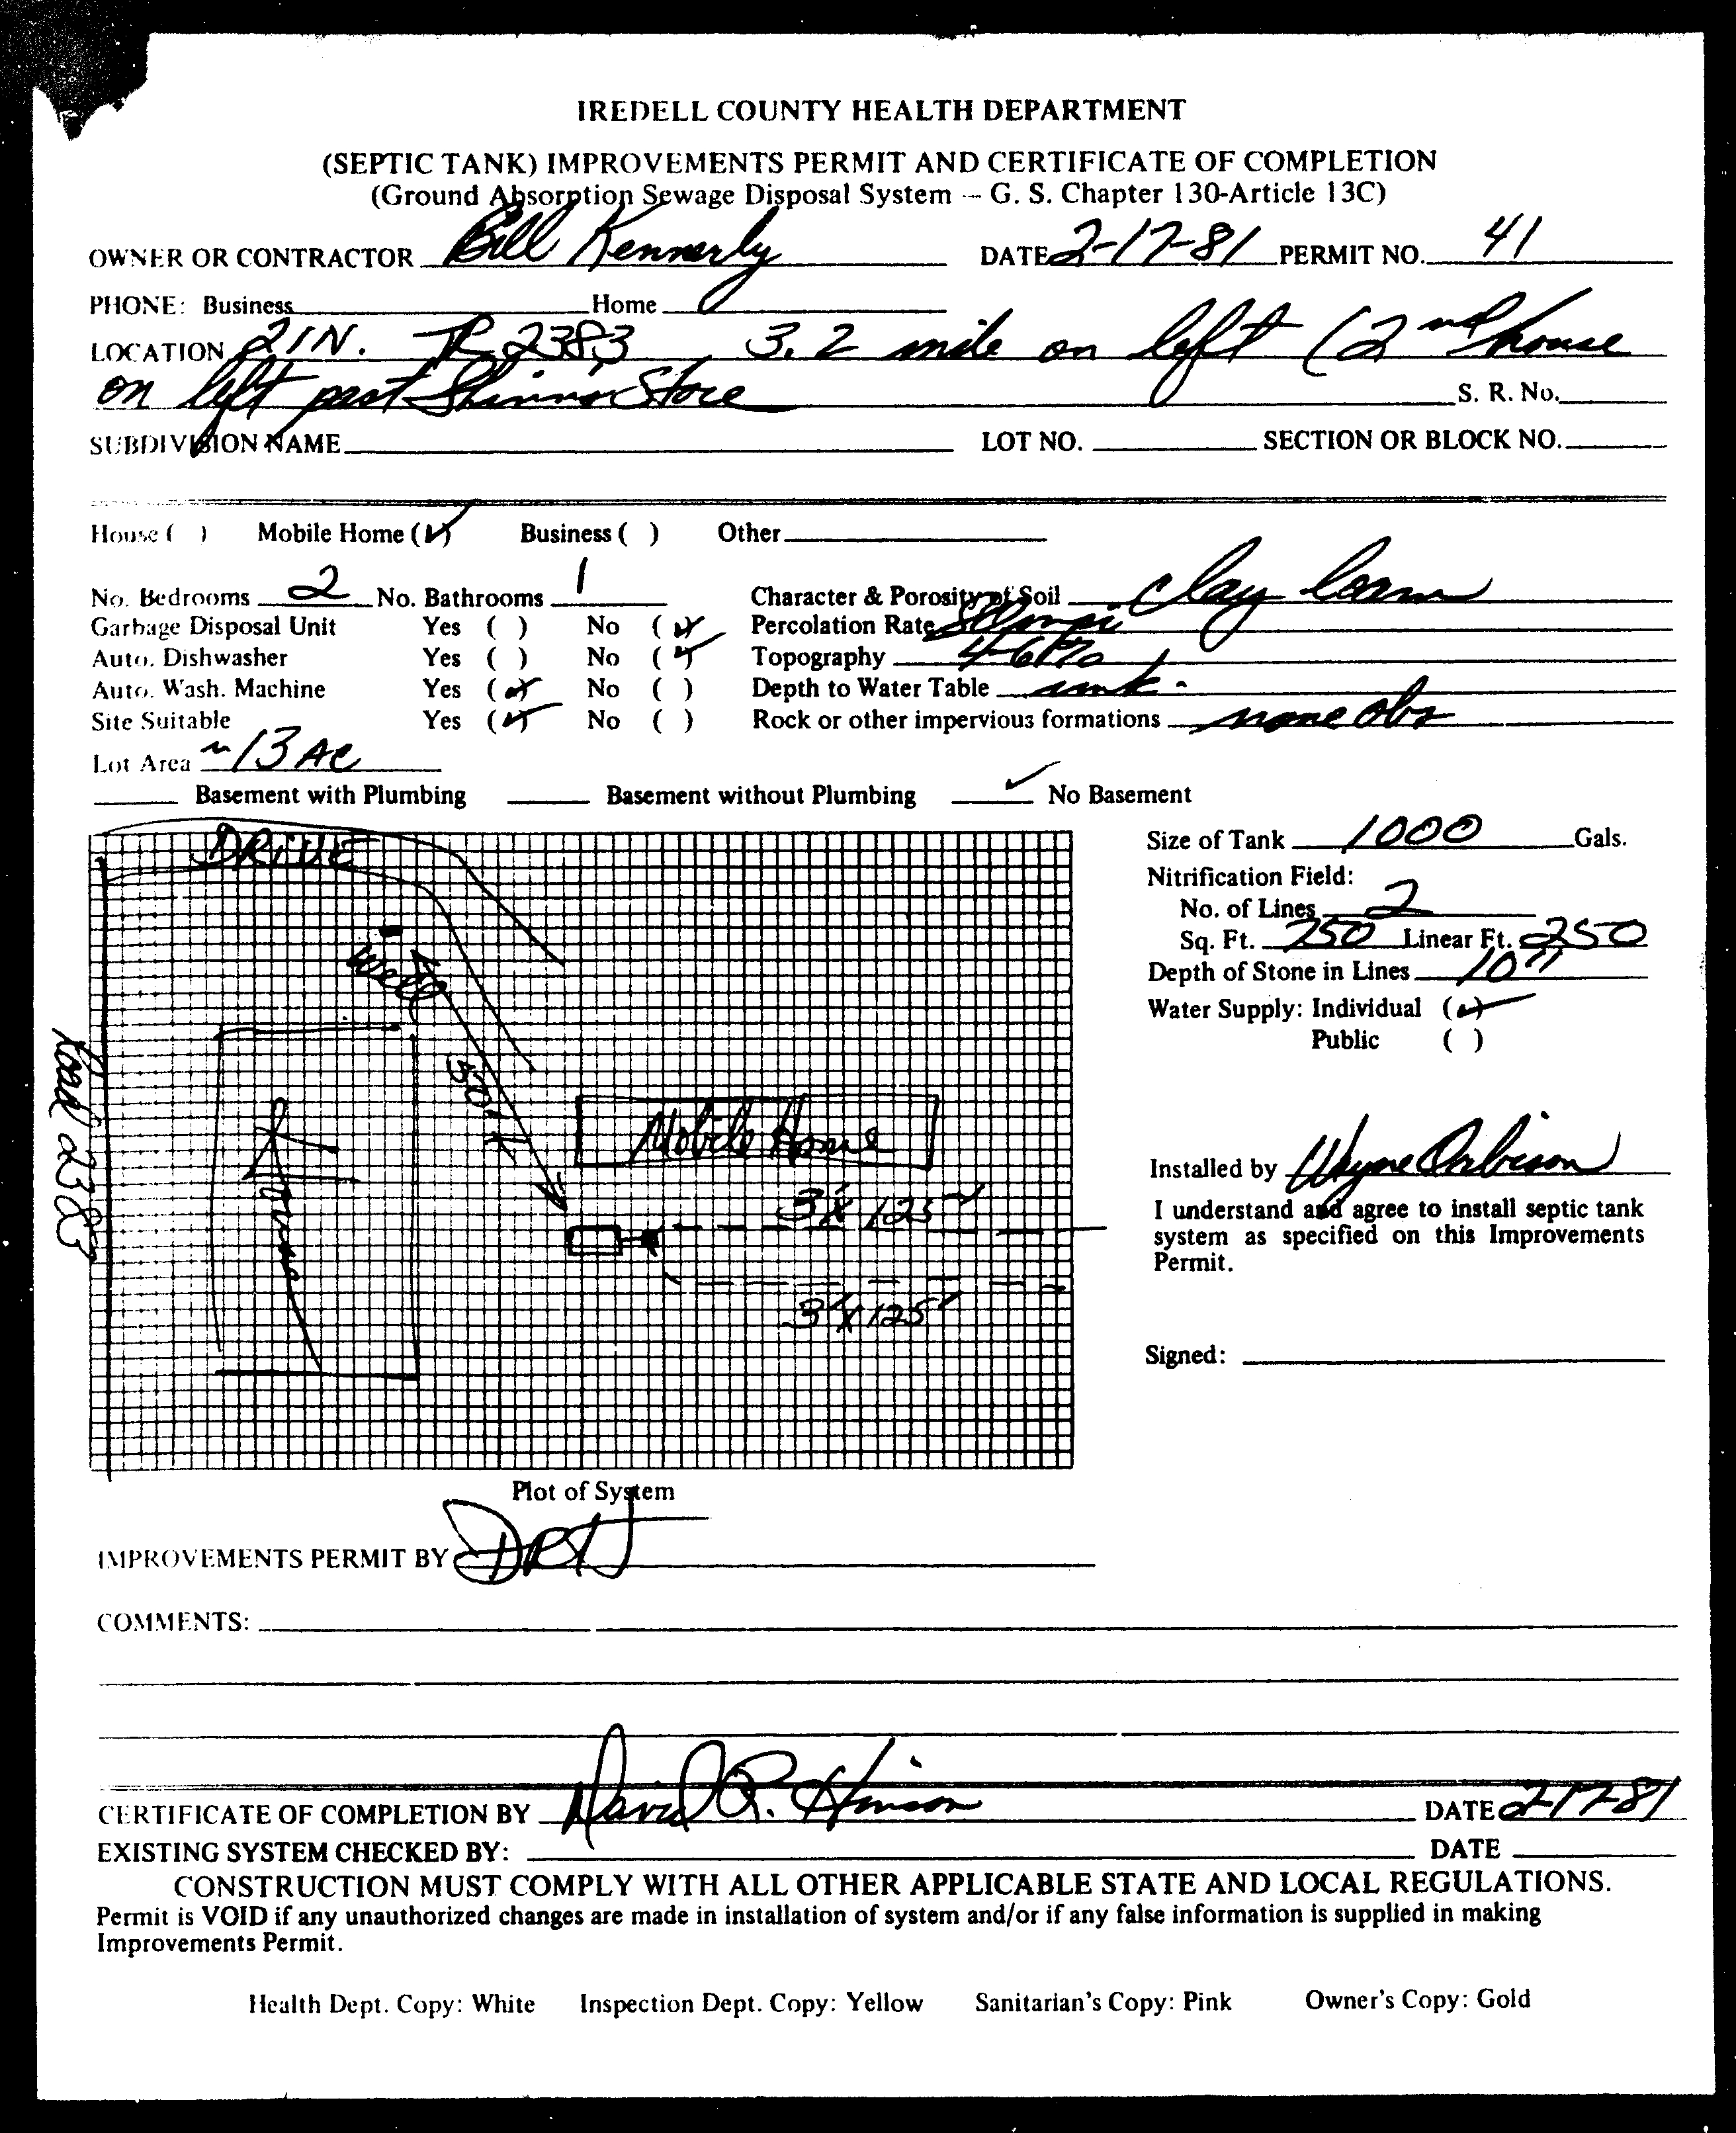 IREDELL COUNTY HEALTH DEPARTMENT
(SEPTIC TANK) IMPROVEMENTS PERMIT AND CERTIFICATE OF COMPLETION
(Ground Absorption Sewage Disposal System -- G. S. Chapter 130-Article 13C)
OWNER OR CONTRACTOR Bill Kennerly DATE 2-17-81 PERMIT NO. 41
PHONE: Business Home
LOCATION 21N. 2383 3.2 mile on left (2nd house
on left past Store S. R. No.
SUBDIVISION NAME LOT NO. SECTION OR BLOCK NO.
House ( ) Mobile Home (✓) Business ( ) Other
No. Bedrooms 2 No. Bathrooms 1 Character & Porosity of Soil clay loam
Garbage Disposal Unit Yes ( ) No (✓) Percolation Rate
Auto. Dishwasher Yes ( ) No (✓) Topography
Auto. Wash. Machine Yes (✓) No ( ) Depth to Water Table unk.
Site Suitable Yes (✓) No ( ) Rock or other impervious formations none obs
Lot Area ~13 AC
Basement with Plumbing Basement without Plumbing ✓ No Basement
DRIVE
Well
50'
Road 2383
Mobile Home
3' x 125'
3' x 125'
Size of Tank 1000 Gals.
Nitrification Field:
No. of Lines 2
Sq. Ft. 750 Linear Ft. 250
Depth of Stone in Lines 10"
Water Supply: Individual (✓)
Public ( )
Installed by Wayne Orbison
I understand and agree to install septic tank
system as specified on this Improvements
Permit.
Signed:
Plot of System
IMPROVEMENTS PERMIT BY DRH
COMMENTS:
CERTIFICATE OF COMPLETION BY David R. Hinson DATE 2-17-81
EXISTING SYSTEM CHECKED BY: DATE
CONSTRUCTION MUST COMPLY WITH ALL OTHER APPLICABLE STATE AND LOCAL REGULATIONS.
Permit is VOID if any unauthorized changes are made in installation of system and/or if any false information is supplied in making
Improvements Permit.
Health Dept. Copy: White Inspection Dept. Copy: Yellow Sanitarian's Copy: Pink Owner's Copy: Gold